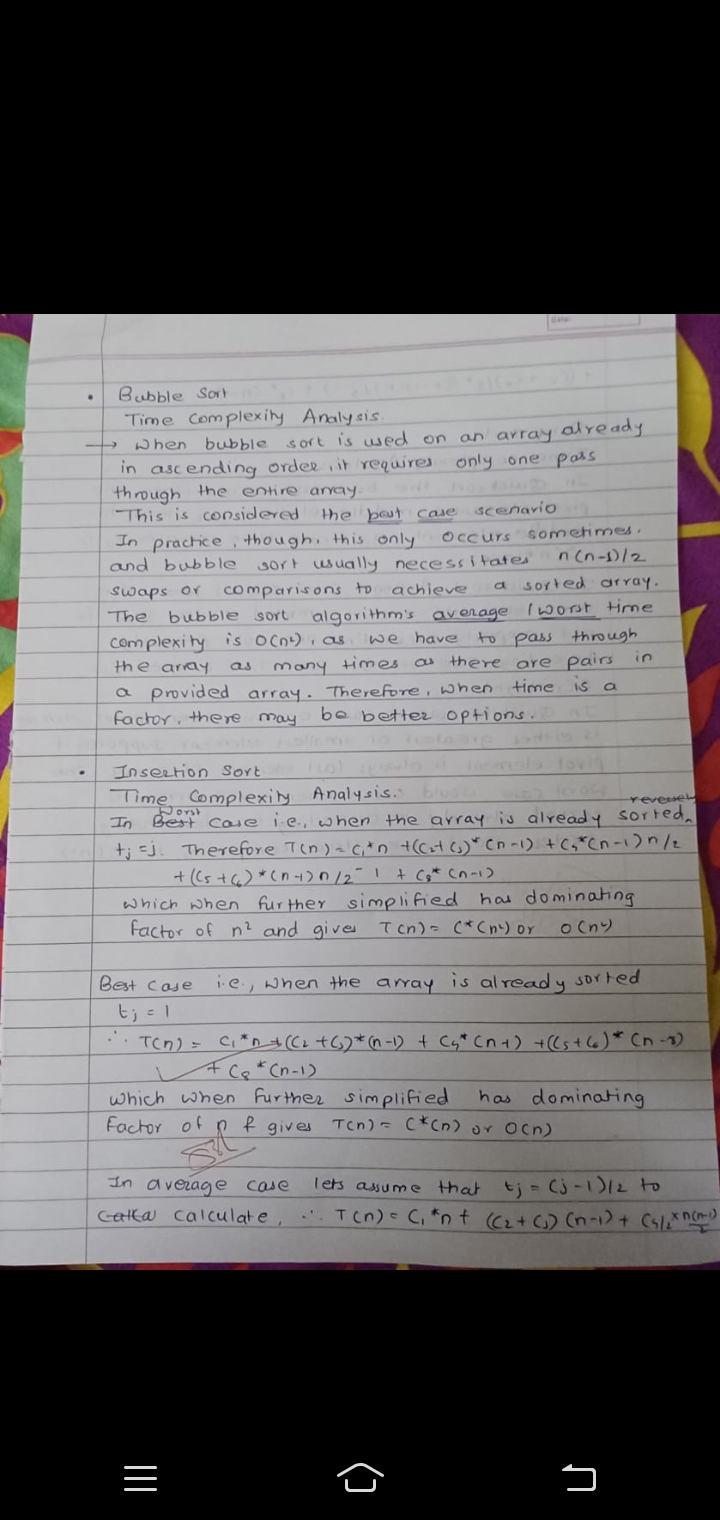 Date:
• Bubble Sort
Time Complexity Analysis.
→ When bubble sort is used on an array already
in ascending order, it requires only one pass
through the entire array.
This is considered the best case scenario
In practice, though, this only occurs sometimes.
and bubble sort usually necessitates n(n-1)/2
swaps or comparisons to achieve a sorted array.
The bubble sort algorithm's average / worst time
complexity is O(n²), as we have to pass through
the array as many times as there are pairs in
a provided array. Therefore, when time is a
factor, there may be better options.
• Insertion Sort
Time Complexity Analysis.
In Worst Case i.e., when the array is already reversely sorted,
tj = j. Therefore T(n) = C1*n + (C2+C3)*(n-1) + C4*(n-1)n/2
+ (C5+C6)*(n-1)n/2 - 1 + C8*(n-1)
which when further simplified has dominating
factor of n² and gives T(n) = C*(n²) or O(n²)
Best case i.e., when the array is already sorted
tj = 1
∴ T(n) = C1*n + (C2+C3)*(n-1) + C4*(n-1) + (C5+C6)*(n-2)
+ C8*(n-1)
which when further simplified has dominating
factor of n & gives T(n) = C*(n) or O(n)
In average case lets assume that tj = (j-1)/2 to
calculate, ∴ T(n) = C1*n + (C2+C3)(n-1) + C4/2*n(n-1)/2